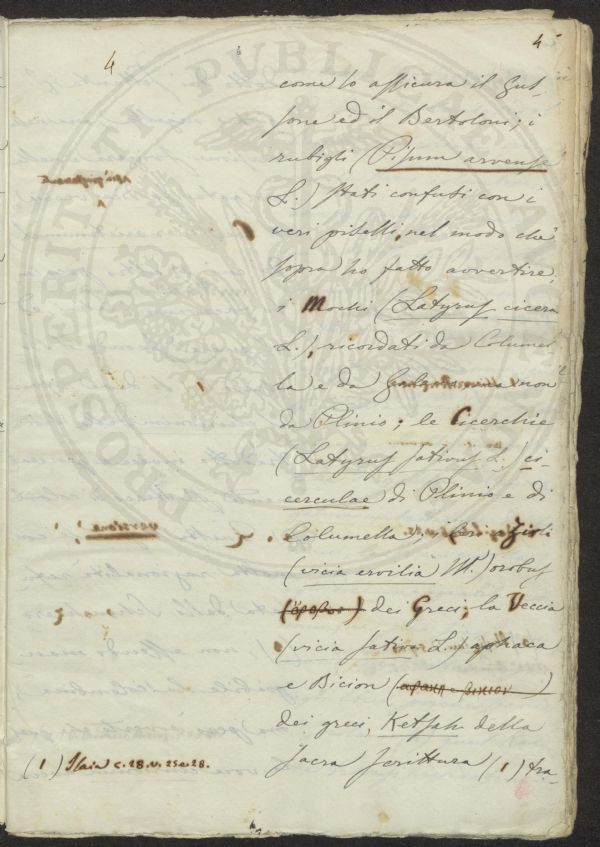 4
4
come lo assicura il Gus-
sone ed il Bertoloni; i
rubigli (Pisum arvense
L.) stati confusi con i
veri piselli, nel modo che
sopra ho fatto avvertire;
i Mochi (Latyrus cicera
L.), ricordati da Columel-
la e da non
da Plinio; le Cicerchie
(Latyrus sativus L.) ci-
cerculae di Plinio e di
Columella,
(vicia ervilia W.) orobus
(ὄροβος) dei Greci; la Veccia
(vicia sativa L.) aphaca
e Bicion (αφακη e βικιον)
dei greci, Ketsah della
sacra scrittura (1) tra-
(1) Isaia c. 28. v. 25 a 28.